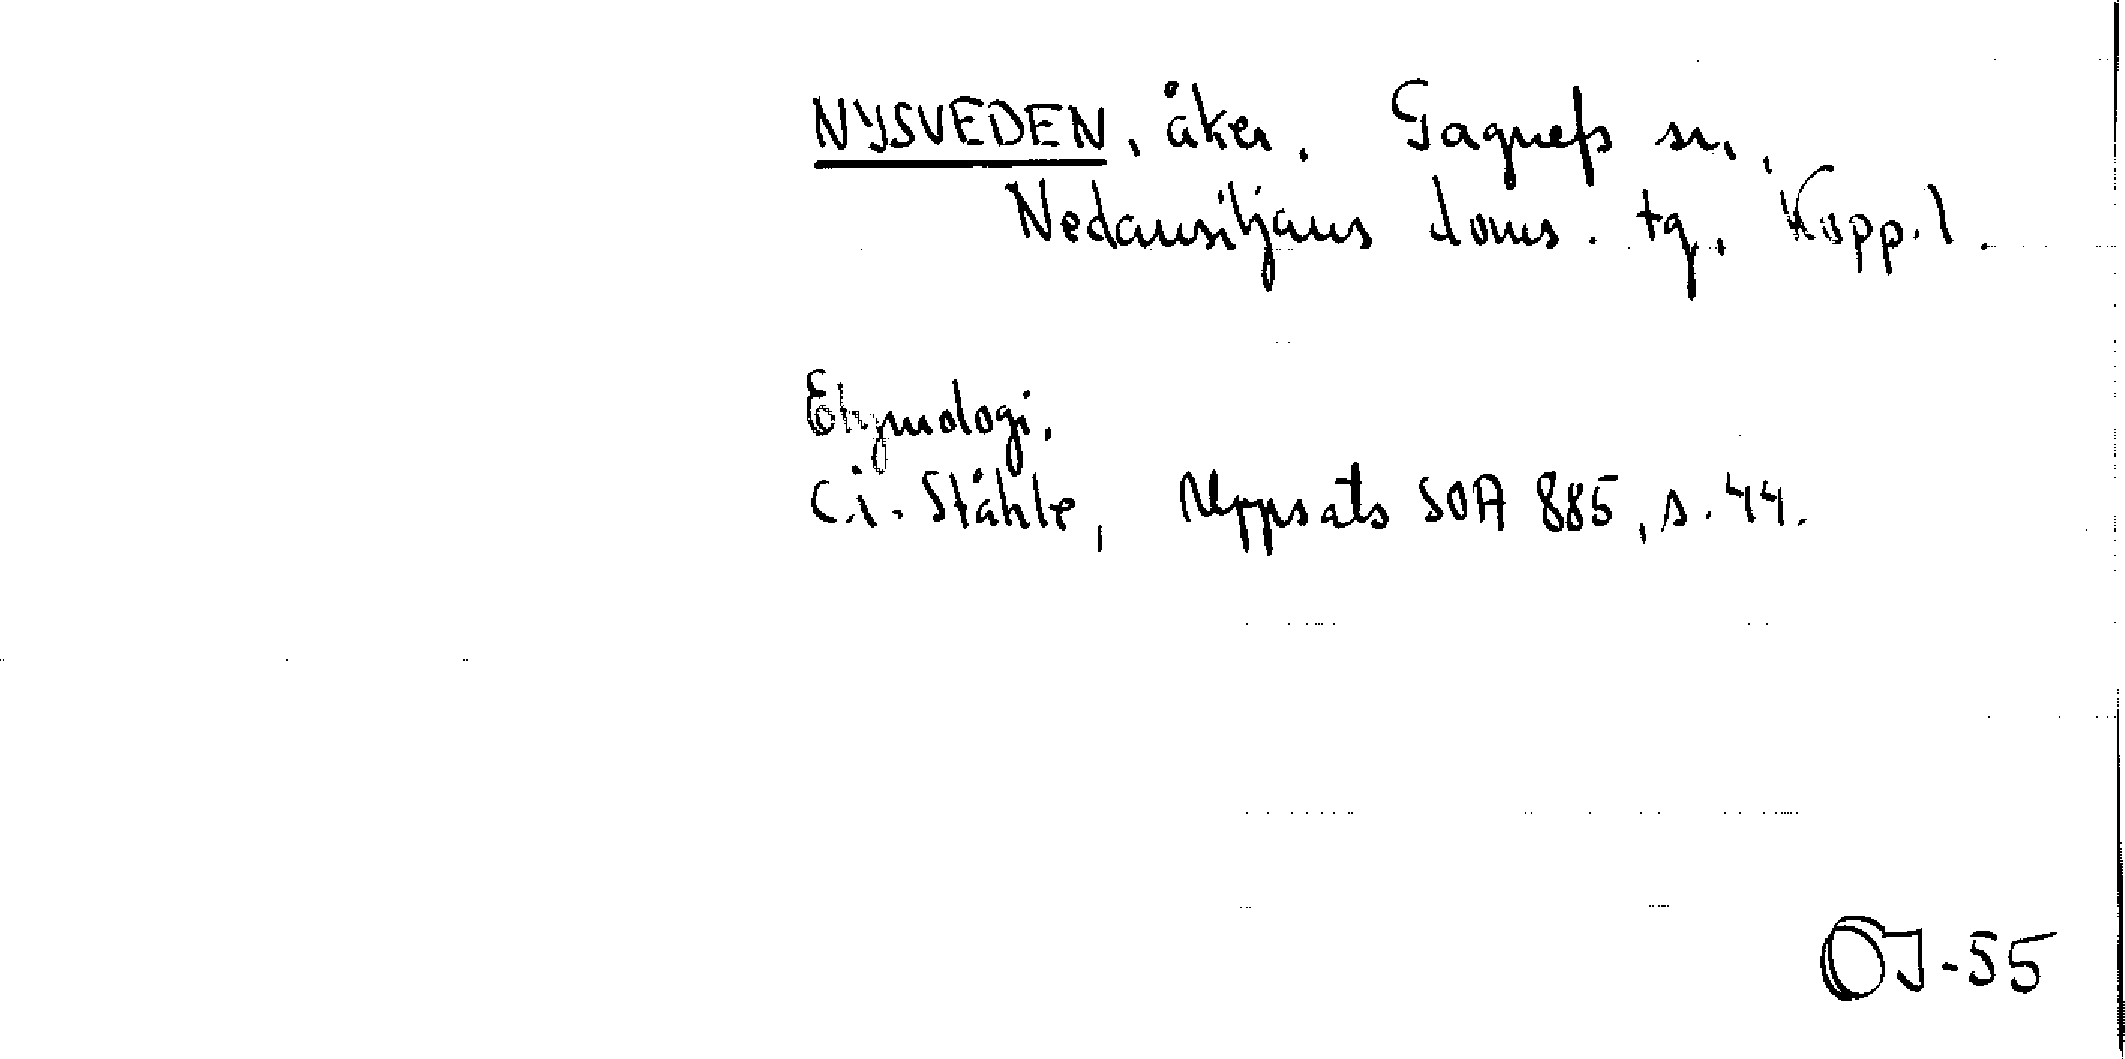 NYSVEDEN, åker. Gagnefs sn,
Nedansiljans doms. tg, Kopp. l.
Etymologi.
C.I. Ståhle, Uppsats SOA 885, s. 44.
OJ-55